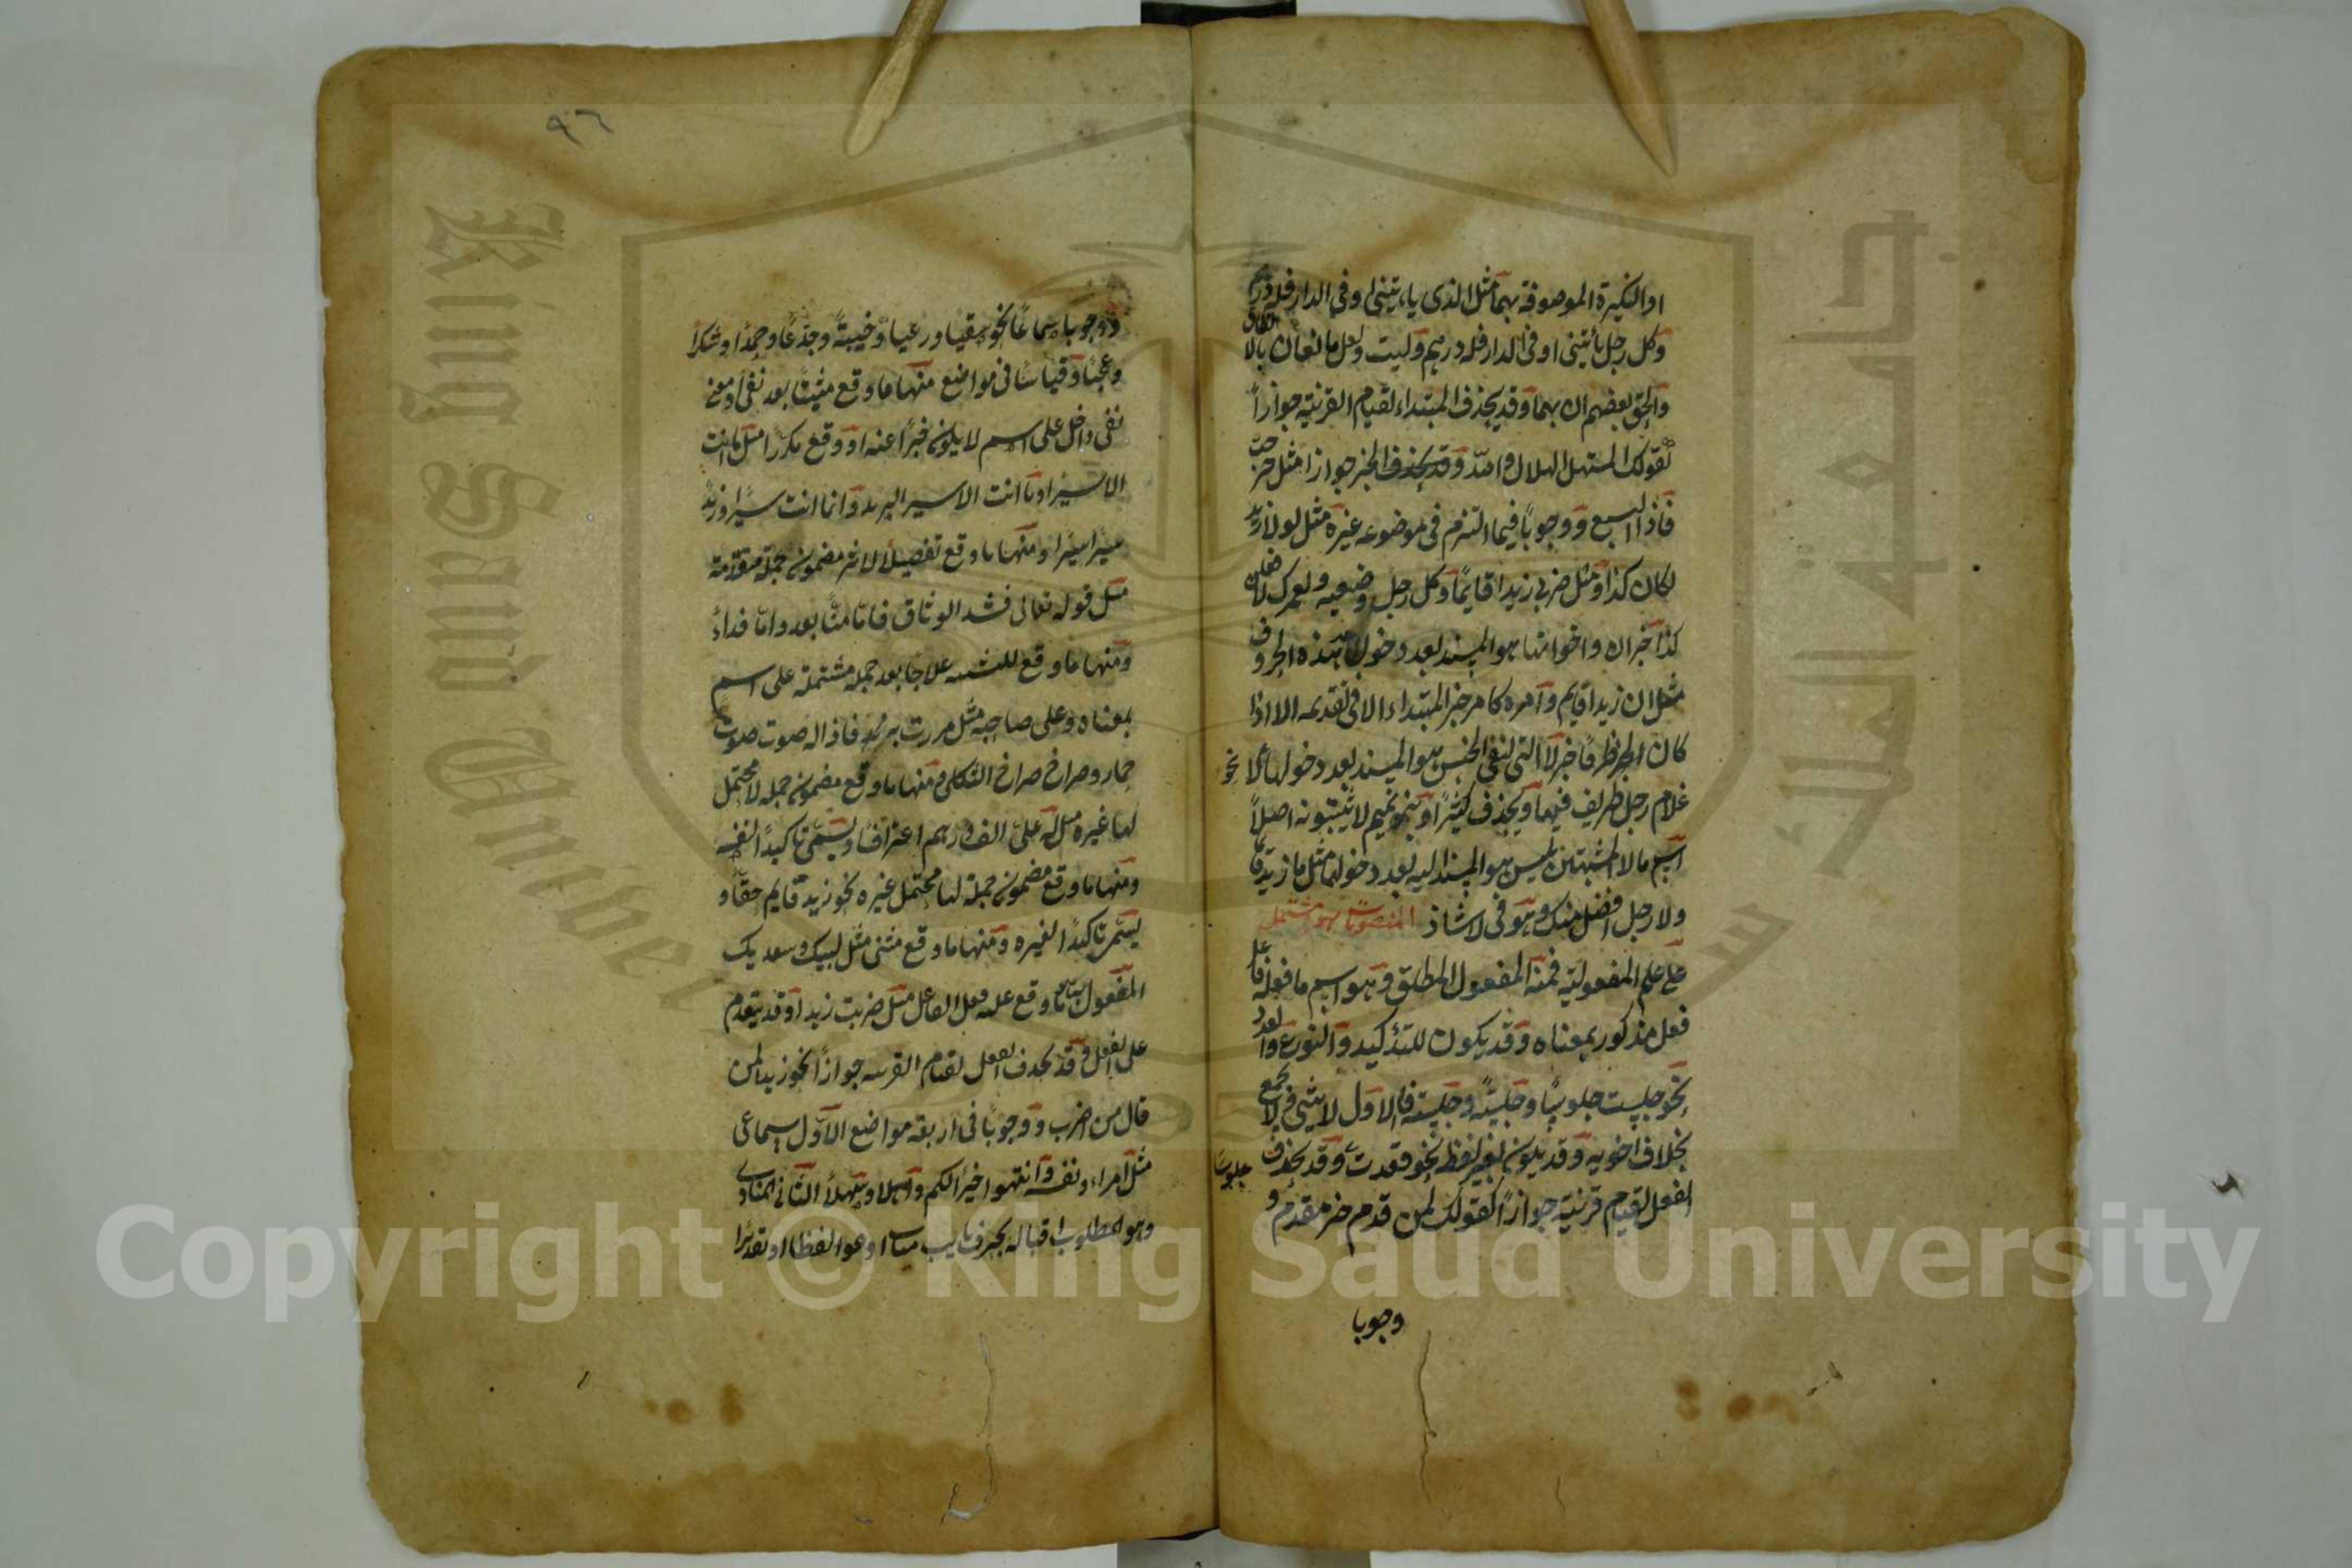 او النكرة الموصوفة بهما مثل الذى يأتينى او فى الدار فله درهم
وكل رجل يأتينى او فى الدار فله درهم وليت ولعل مانعان بالاتفاق
والحق بعضهم ان بهما وقد يحذف المبتداء لقيام القرينة جوازاً
كقولك المستهل الهلال والله وقد يحذف الخبر جوازا مثل خرجت
فاذا السبع ووجوباً فيما التزم فى موضوعه غيره مثل لولا زيد
لكان كذا ومثل ضربى زيدا قايمًا وكل رجل وضيعه ولعمرك لافعلن
كذا خبر ان واخواتها هو المسند بعد دخول هذه الحروف
مثل ان زيدا قايم وامره كامر خبر المبتداء الا فى تقديمه الا اذا
كان الخبر ظرفًا خبر لا التى لنفى الجنس هو المسند بعد دخولها نحو لا
غلام رجل ظريف فيها ويحذف كثيرًا وبنو تميم لا يثبتونه اصلاً
اسم ما لا المشبهتين بليس هو المسند اليه بعد دخولهما مثل ما زيد قايما
ولا رجل افضل منك وهو فى لا شاذ المنصوبات هو ما اشتمل
على علم المفعولية فمنه المفعول المطلق وهو اسم ما فعله فاعل
فعل مذكور بمعناه وقد يكون للتأكيد والنوع والعدد
نحو جلست جلوسًا وجلسةً وجلسة فالاول لا يثنى ولا يجمع
بخلاف اخويه وقد يكون بغير لفظه نحو قعدت جلوسًا وقد يحذف
الفعل لقيام قرينة جوازاً كقولك لمن قدم خير مقدم و
وجوبا
٩٦
ووجوبا سماعًا نحو سقيا ورعيا وخيبةً وجدعًا وحمدًا وشكرا
وعجبًا وقياسًا فى مواضع منها ما وقع مثبتًا بعد نفى او معنى
نفى داخل على اسم لا يكون خبرًا عنه او وقع مكررًا مثل ما انت
الا سيرا وما انت الا سير البريد وانما انت سيرًا وزيد
سيرًا سيرًا ومنها ما وقع تفصيلًا لاثر مضمون جملة متقدمة
مثل قوله تعالى فشدوا الوثاق فاما منًّا بعد واما فداءً
ومنها ما وقع للتشبيه علاجا بعد جملة مشتملة على اسم
بمعناه وعلى صاحبه مثل مررت بزيد فاذا له صوت صوت
حمار وصراخ صراخ الثكلى ومنها ما وقع مضمون جملة لا محتمل
لها غيره مثل له علىّ الف درهم اعترافًا ويسمّى تاكيدًا لنفسه
ومنها ما وقع مضمون جملة لها محتمل غيره نحو زيد قايم حقًا و
يسمّى تاكيدًا لغيره ومنها ما وقع مثنى مثل لبيك وسعديك
المفعول به هو ما وقع عليه فعل الفاعل مثل ضربت زيدا وقد يتقدم
على الفعل وقد يحذف الفعل لقيام القرينه جوازاً نحو زيدا لمن
قال من اضرب ووجوبًا فى اربعة مواضع الاول سماعى
مثل امراء ونفسه وانتهوا خيرًا لكم واهلا وسهلاً الثانى المنادى
وهو المطلوب اقباله بحرف نايب مناب ادعوا لفظا او تقديرا